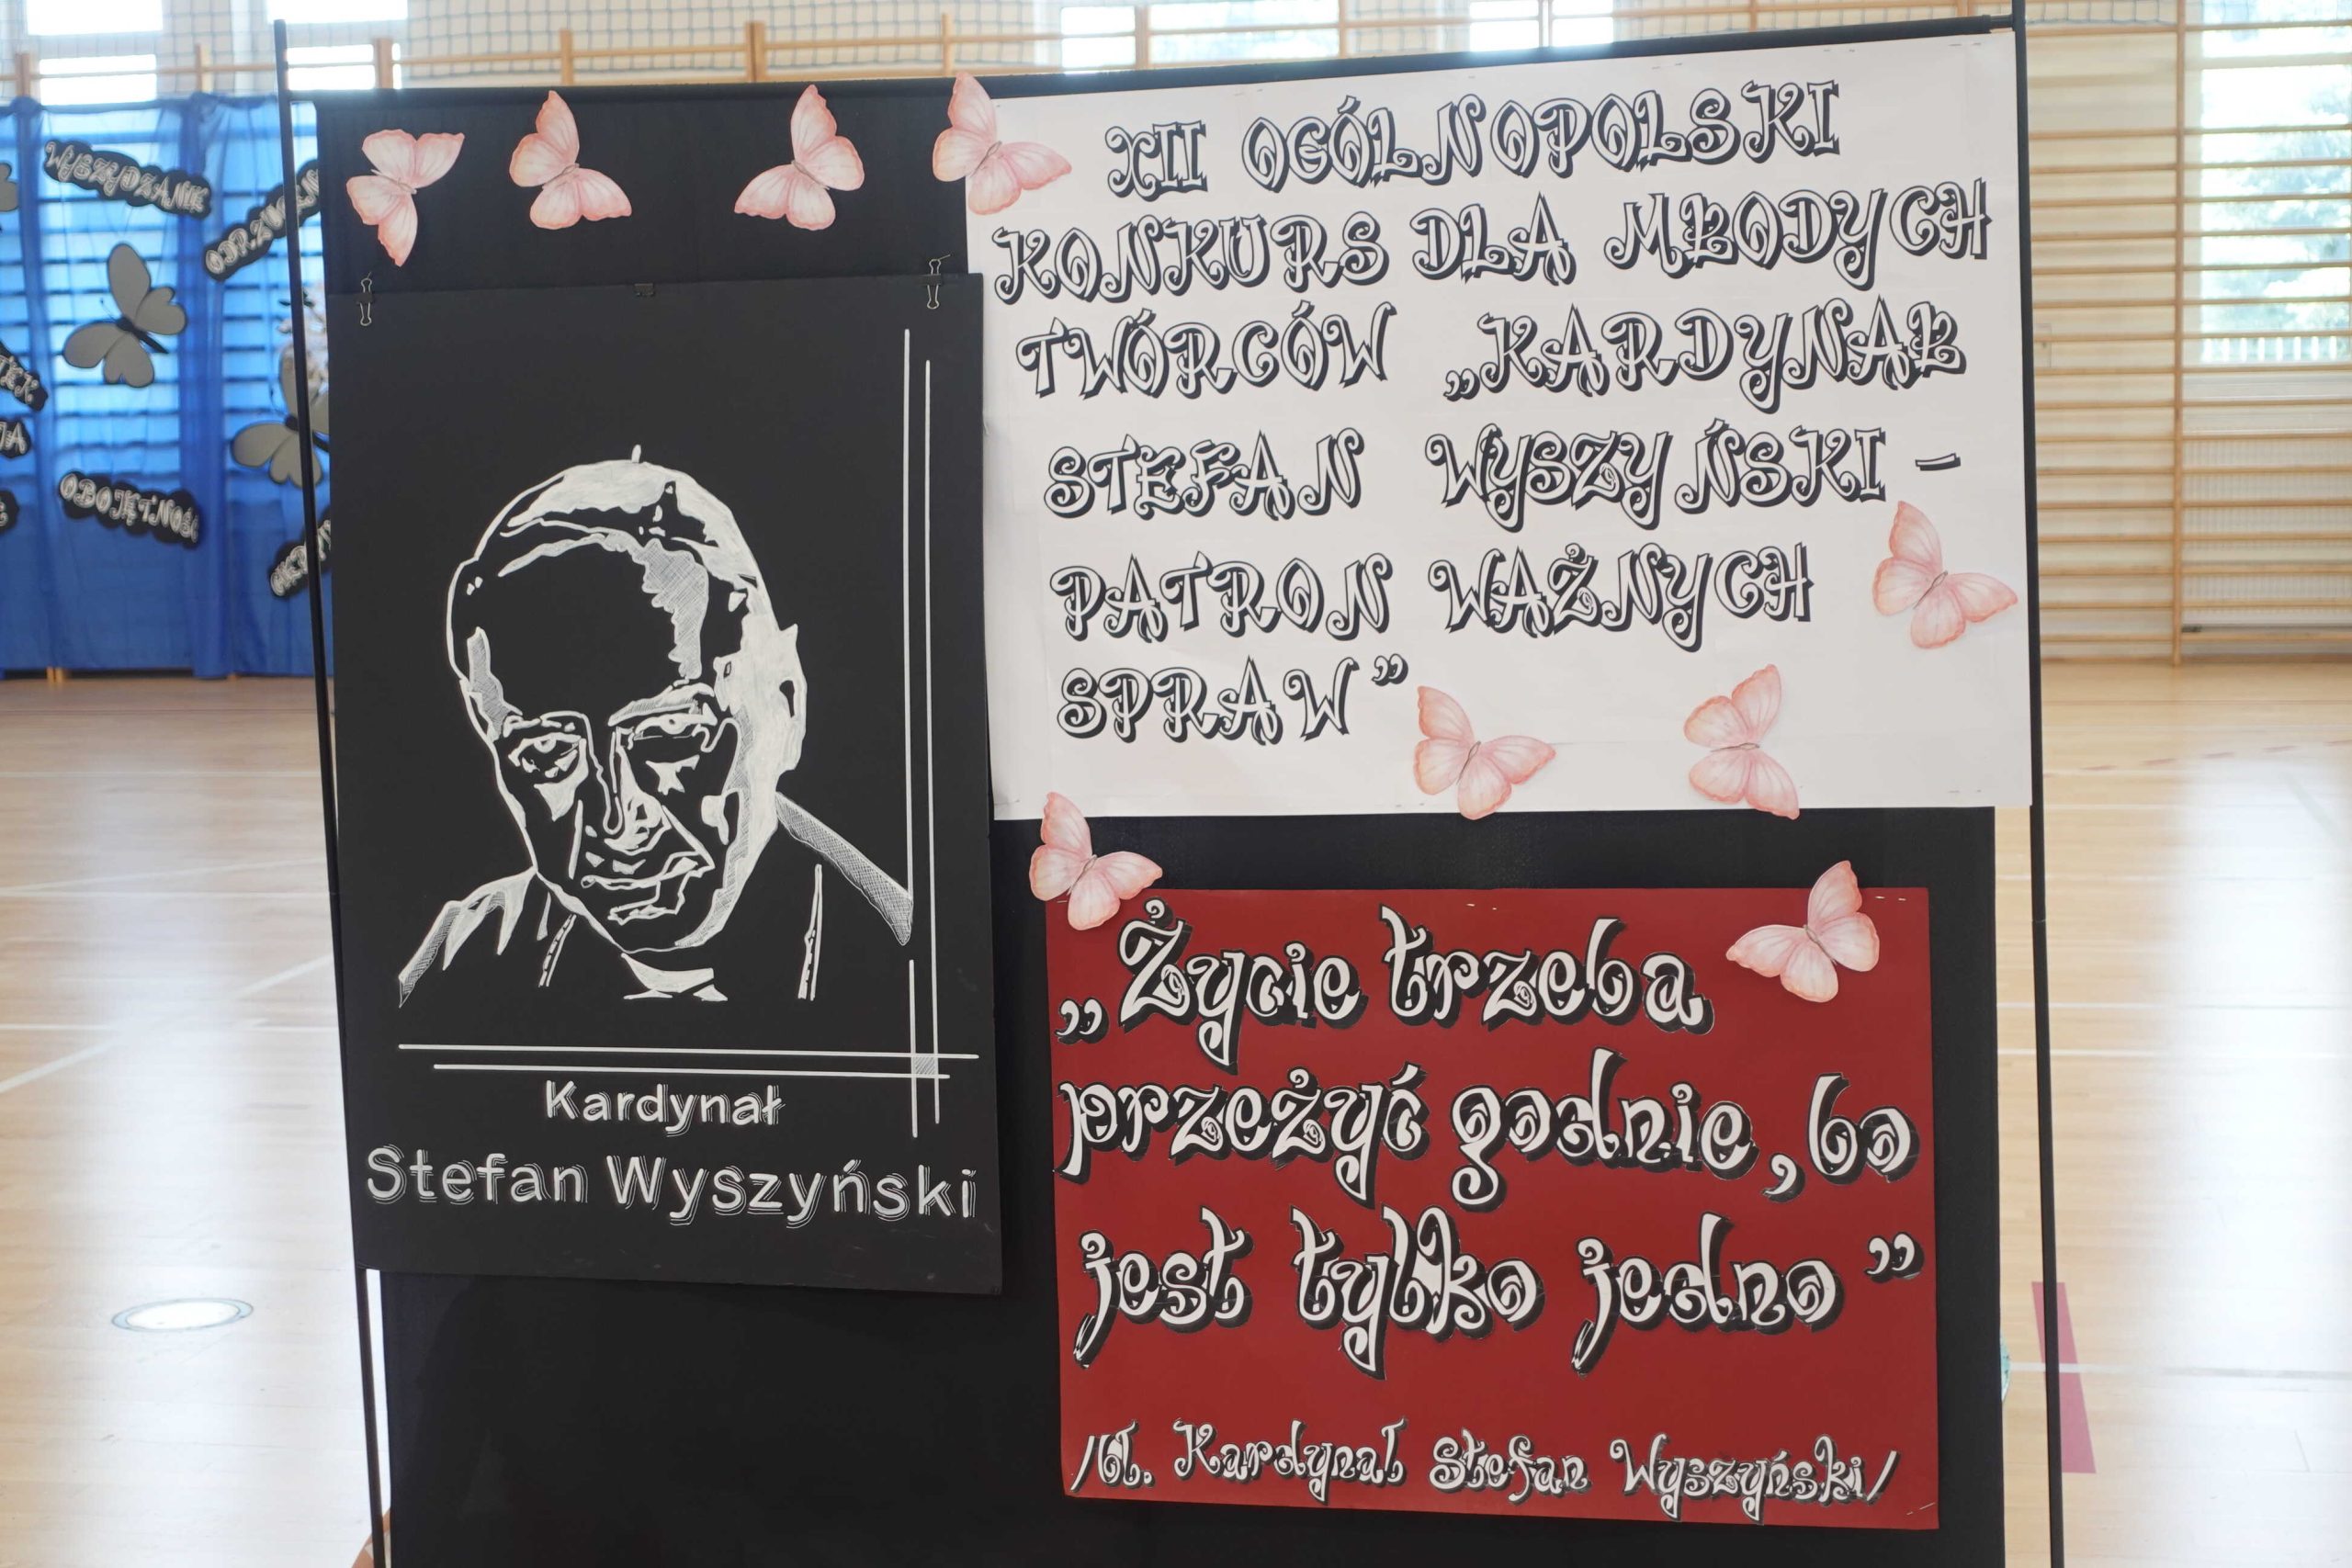 WYSZYDZANIE
OBOJĘTNOŚĆ
Kardynał
Stefan Wyszyński
XII OGÓLNOPOLSKI
KONKURS DLA MŁODYCH
TWÓRCÓW „KARDYNAŁ
STEFAN WYSZYŃSKI –
PATRON WAŻNYCH
SPRAW”
„Życie trzeba
przeżyć godnie, bo
jest tylko jedno”
/bł. Kardynał Stefan Wyszyński/